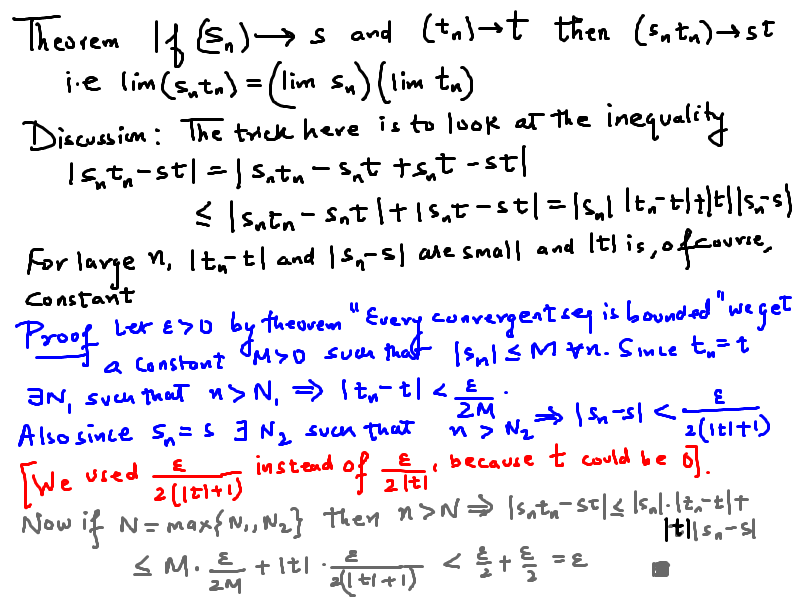 Theorem If (sₙ) → s and (tₙ) → t then (sₙtₙ) → st
i.e lim(sₙtₙ) = (lim sₙ)(lim tₙ)
Discussion: The trick here is to look at the inequality
|sₙtₙ - st| = |sₙtₙ - sₙt + sₙt - st|
≤ |sₙtₙ - sₙt| + |sₙt - st| = |sₙ| |tₙ - t| + |t||sₙ - s|
For large n, |tₙ - t| and |sₙ - s| are small and |t| is, of course,
constant
Proof Let ε > 0 by theorem "Every convergent seq is bounded" we get
a constant M > 0 such that |sₙ| ≤ M ∀n. Since tₙ = t
∃N₁ such that n > N₁ ⇒ |tₙ - t| < ε/2M.
Also since sₙ = s ∃ N₂ such that n > N₂ ⇒ |sₙ - s| < ε/2(|t|+1)
[We used ε/2(|t|+1) instead of ε/2|t|, because t could be 0].
Now if N = max{N₁, N₂} then n > N ⇒ |sₙtₙ - st| ≤ |sₙ|·|tₙ - t| +
|t||sₙ - s|
≤ M · ε/2M + |t| · ε/2(|t|+1) < ε/2 + ε/2 = ε ■